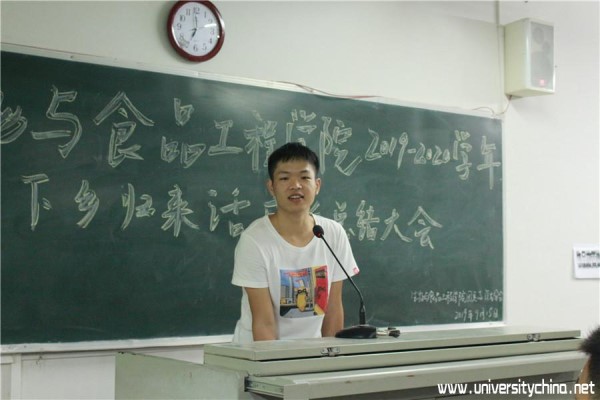 物与食品工程学院2019-2020学年
下乡归来活动总结大会
2019年9月15日
www.universitychina.net